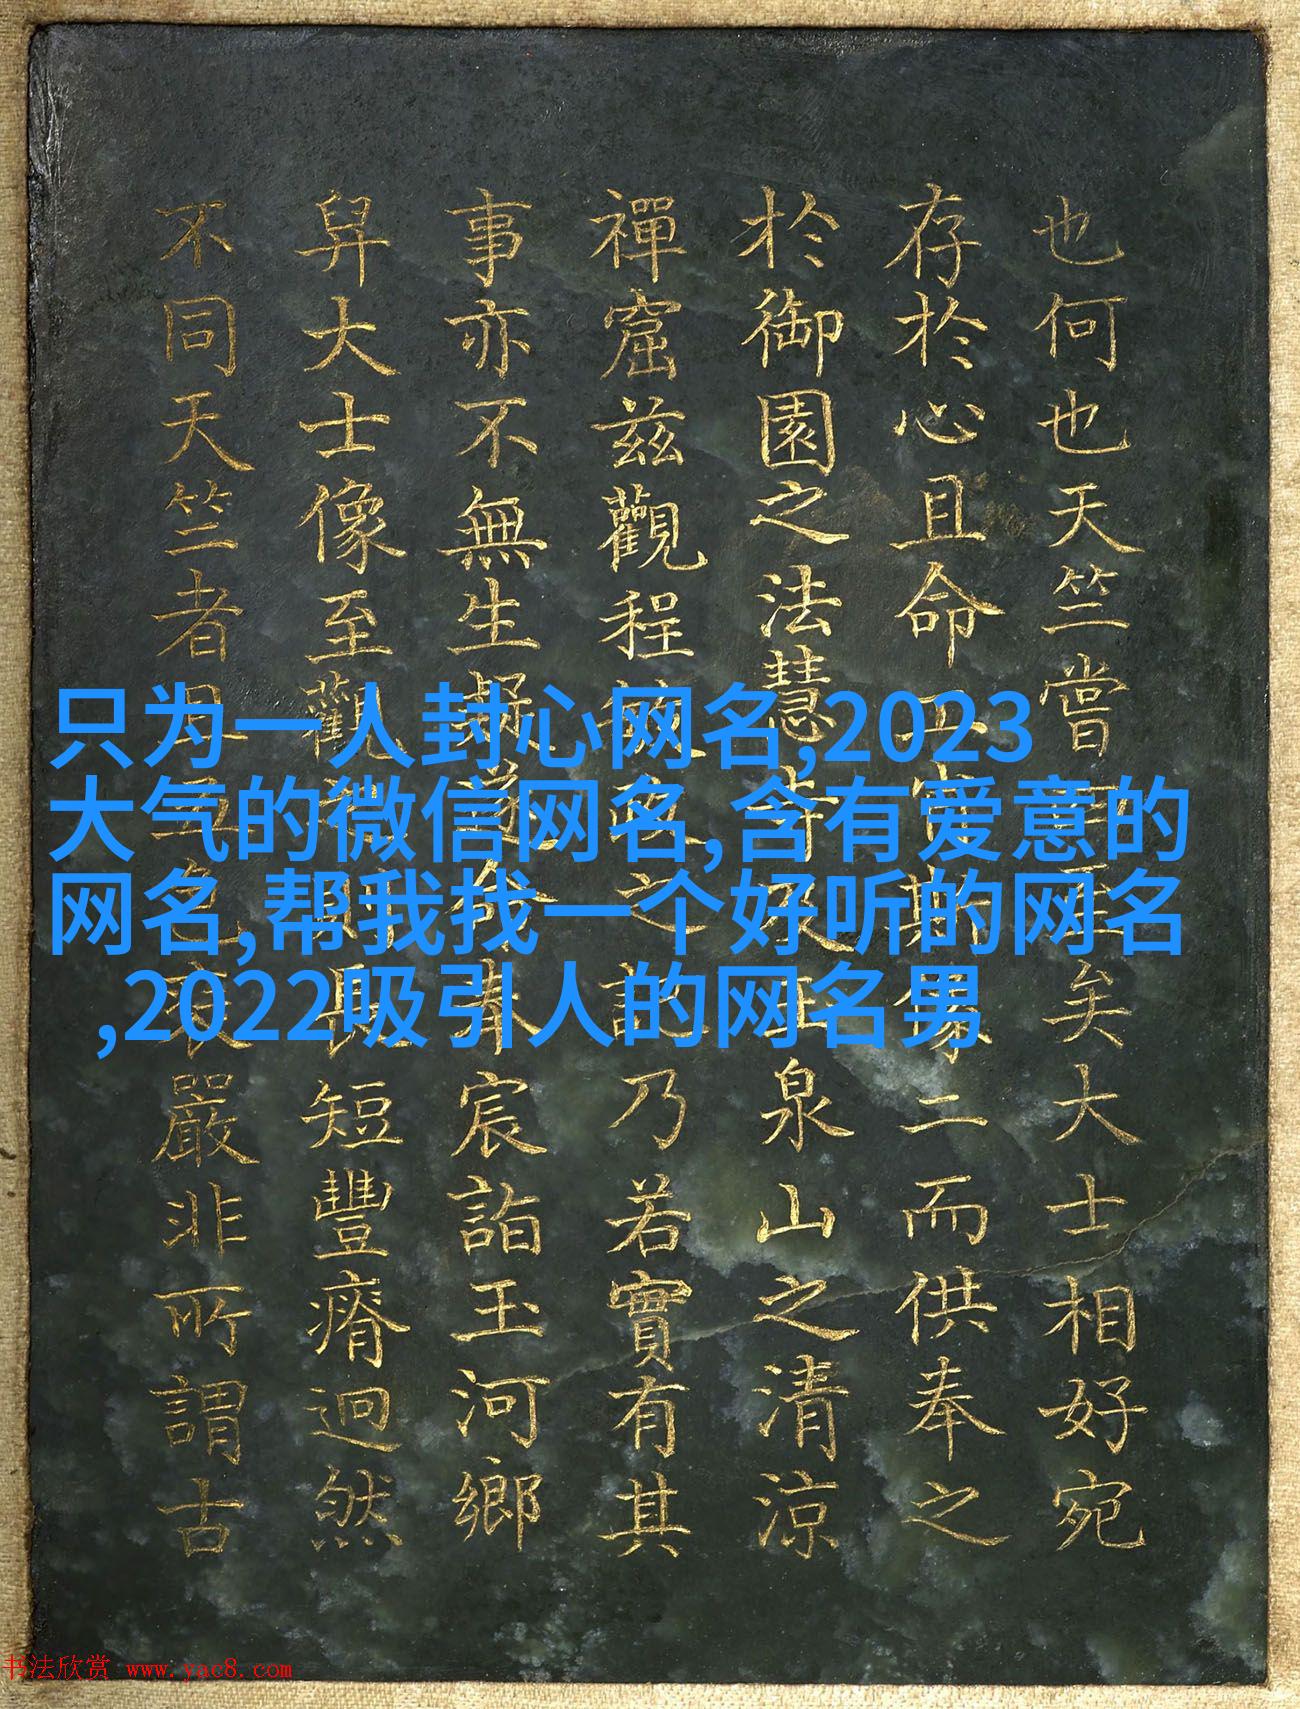 也何也天竺嘗
矣大士相好宛
存於心且命
二而供奉之
於御園之法慧
泉山之清涼
禪窟兹觀程
之
乃若實有其
事亦不無生
宸詣玉河鄉
舁大士像至觀
短豐瘠迥然
不同天竺者
嚴非所謂古
只为一人封心网名,2023
大气的微信网名,含有爱意的
网名,帮我找一个好听的网名
,2022吸引人的网名男
书法欣赏 www.yac8.com